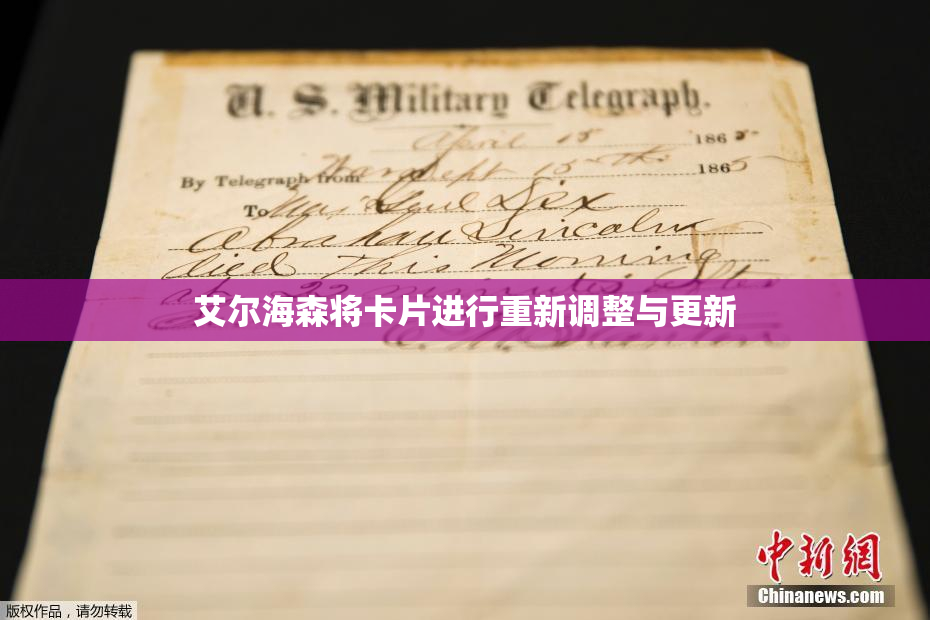 U. S. Military Telegraph.
April 15 1865
By Telegraph from War Dept 15th 1865
To Maj Genl Dix
Abraham Lincoln
died This Morning
at 22 minutes after
艾尔海森将卡片进行重新调整与更新
E. M. Stanton
中新網
Chinanews.com
版权作品，请勿转载